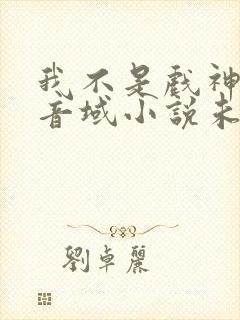 我不是戲神
音域小說未
劉卓麗